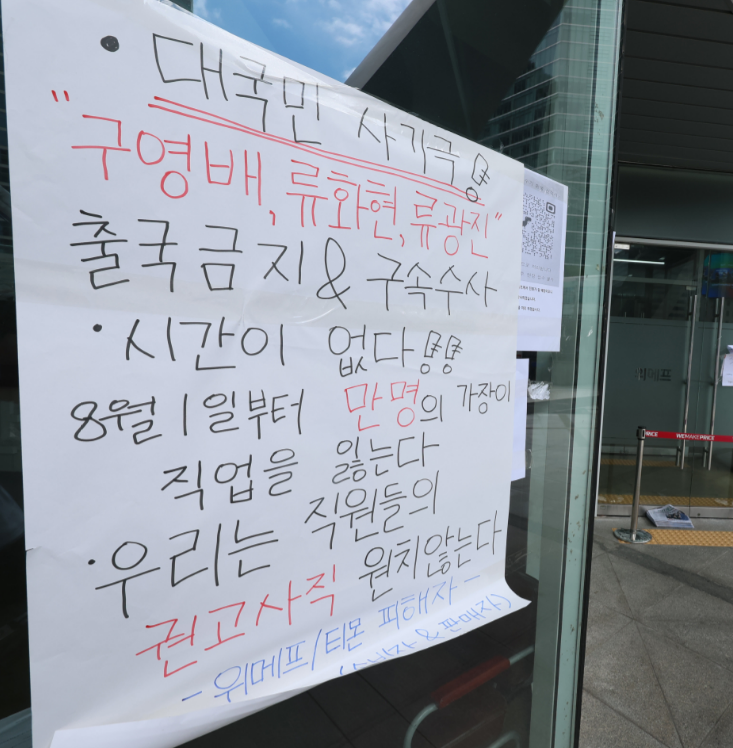 • 대국민 사기극!!
"구영배, 류화현, 류광진"
출국금지 & 구속수사
• 시간이 없다!!!!
8월 1일부터 만명의 가장이
직업을 잃는다
• 우리는 직원들의
권고사직 원치않는다
- 위메프/티몬 피해자 -
& 판매자)
위메프
WEMAKEPRICE